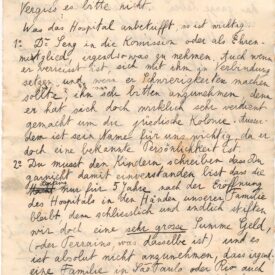 Vergiss es bitte nicht.
Was das Hospital anbetrifft, so ist wichtig:
1º Dr Seng in die Komission oder als Ehren-
mitglied, irgendwo zu nehmen. Auch wenn
er verreist ist, sich mit ihm in Verbindung
setzen und wenn er Schwierigkeiten machen
sollte, ihn sehr bitten anzunehmen, denn
er hat sich doch wirklich sehr verdient
gemacht um die jüdische Kolonie. Ausser-
dem ist sein Name für uns wichtig, da er
doch eine bekannte Persönlichkeit ist.
2º Du musst den Kindern schreiben dass Du
garnicht damit einverstanden bist dass die
nur für 5 Jahre nach der Eröffnung
des Hospitals in den Händen unserer Familie
bleibt, denn schliesslich und endlich stiften
wir doch eine sehr grosse Summe Geld,
(oder Terrains, was dasselbe ist) und es
ist absolut nicht anzunehmen, dass irgend
eine Familie in São Paulo oder Rio auch